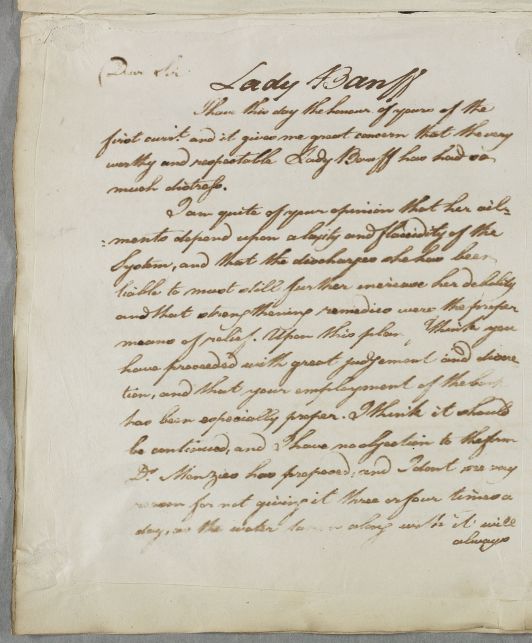 Dear Sir
Lady Banff
I have this day the honour of yours of the
first curr.t and it gives me great concern that the very
worthy and respectable Lady Banff has had so
much distress.
I am quite of your opinion that her ail-
-ments depend upon a laxity and flaccidity of the
System, and that the discharges she has been
liable to must still further increase her debility
and that strengthening remedies were the proper
means of relief. Upon this plan, I think you
have proceeded with great judgement and discre-
tion, and that your employment of the bark
has been especially proper. I think it should
be continued, and I have no objection to the form
Dr. Menzies has proposed, and I dont see any
reason for not giving it three or four times a
day, as the water taken along with it will
always